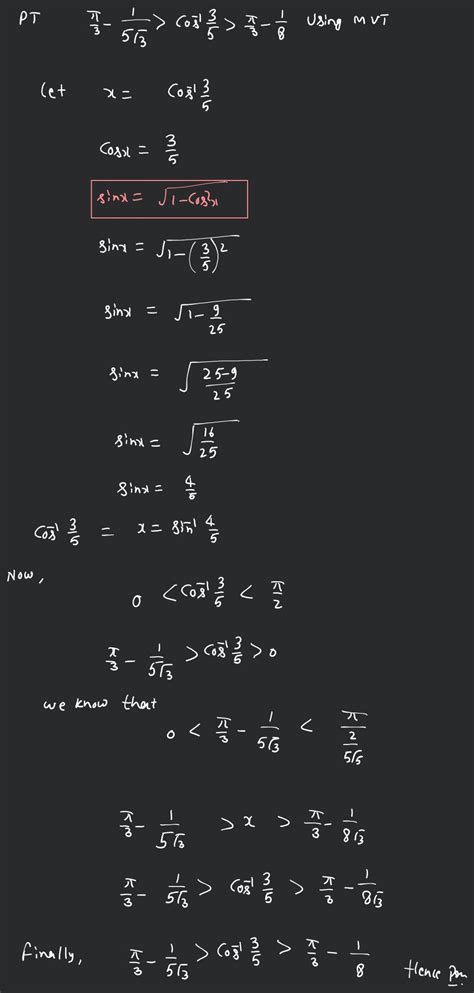 PT π/3 - 1/5√3 > cos⁻¹ 3/5 > π/3 - 1/8 Using MVT
Let x = cos⁻¹ 3/5
cosx = 3/5
sinx = √1-cos²x
sinx = √1-(3/5)²
sinx = √1- 9/25
sinx = √25-9/25
sinx = √16/25
sinx = 4/5
cos⁻¹ 3/5 = x = sin⁻¹ 4/5
Now,
0 < cos⁻¹ 3/5 < π/2
π/3 - 1/5√3 > cos⁻¹ 3/5 > 0
we know that
0 < π/3 - 1/5√3 < π/2/5√5
π/3 - 1/5√3 > x > π/3 - 1/8√3
π/3 - 1/5√3 > cos⁻¹ 3/5 > π/3 - 1/8√3
Finally, π/3 - 1/5√3 > cos⁻¹ 3/5 > π/3 - 1/8
Hence